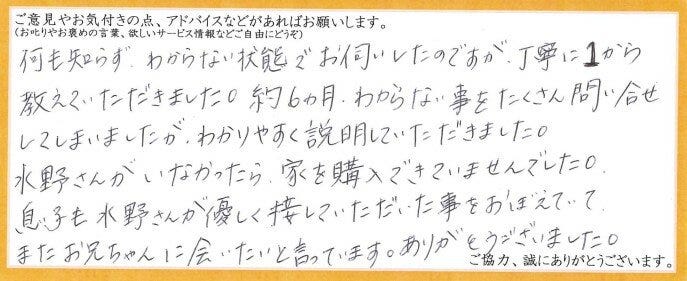 ご意見やお気付きの点、アドバイスなどがあればお願いします。
(お叱りやお褒めの言葉、欲しいサービス情報などご自由にどうぞ)
何も知らず、わからない状態でお伺いしたのですが、丁寧に1から
教えていただきました。約6カ月、わからない事をたくさん問い合せ
してしまいましたが、わかりやすく説明していただきました。
水野さんがいなかったら、家を購入できていませんでした。
息子も水野さんが優しく接していただいた事をおぼえていて、
またお兄ちゃんに会いたいと言っています。ありがとうございました。
ご協力、誠にありがとうございます。